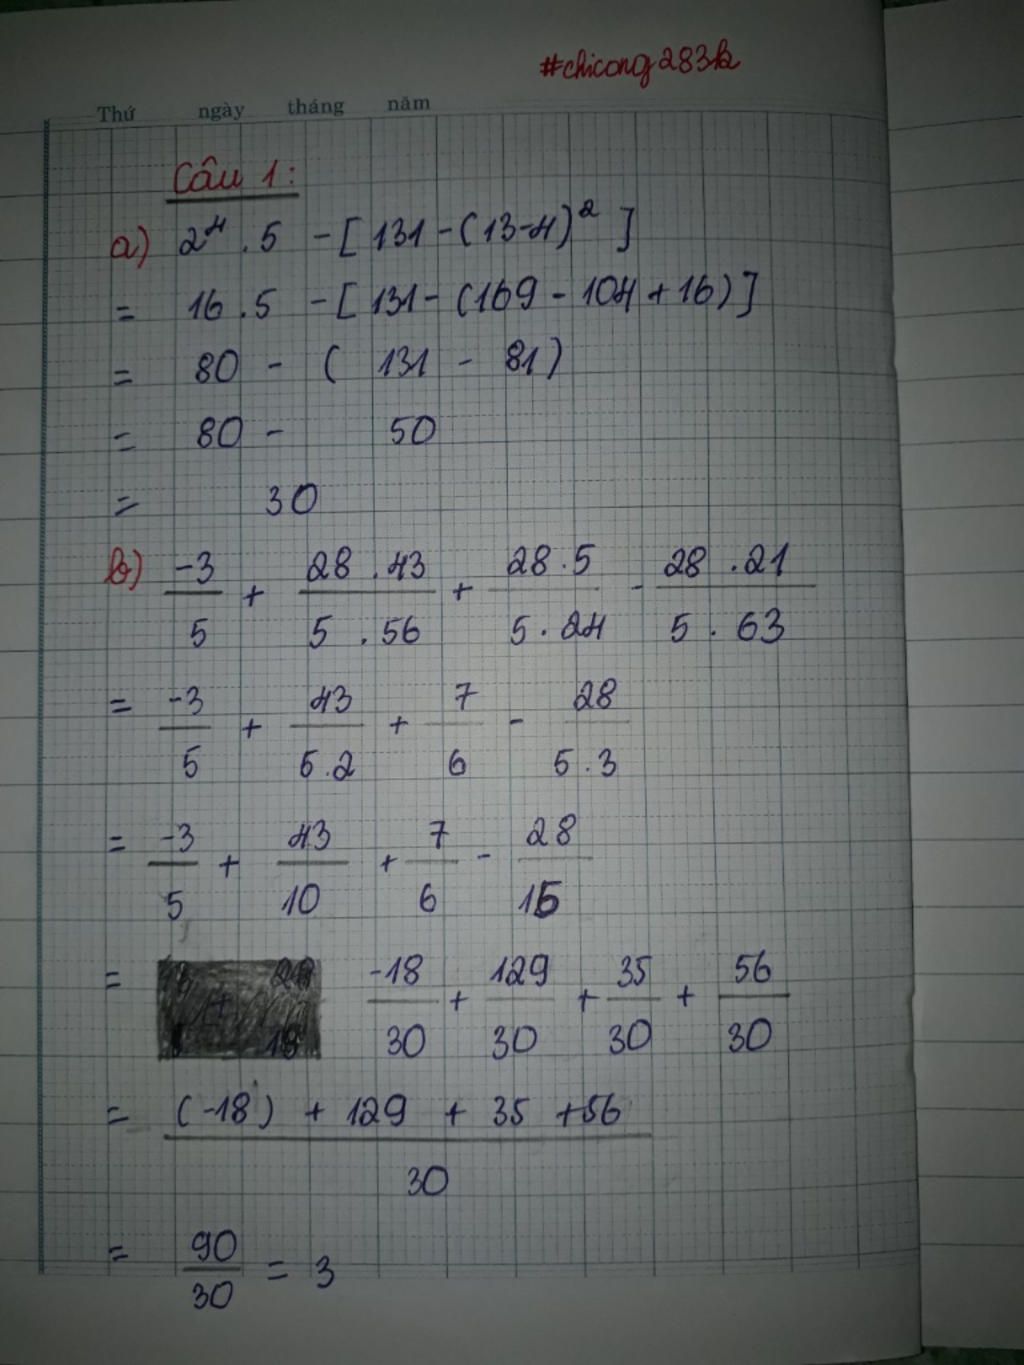 #chicong283k
Thứ ngày tháng năm
Câu 1:
a) 2⁴ . 5 - [ 131 - (13-4)² ]
= 16 . 5 - [ 131 - (169 - 104 + 16) ]
= 80 - ( 131 - 81 )
= 80 - 50
= 30
b) -3/5 + 28 . 43/5 . 56 + 28 . 5/5 . 24 - 28 . 21/5 . 63
= -3/5 + 43/5.2 + 7/6 - 28/5.3
= -3/5 + 43/10 + 7/6 - 28/15
= -18/30 + 129/30 + 35/30 + 56/30
= (-18) + 129 + 35 + 56/30
= 90/30 = 3